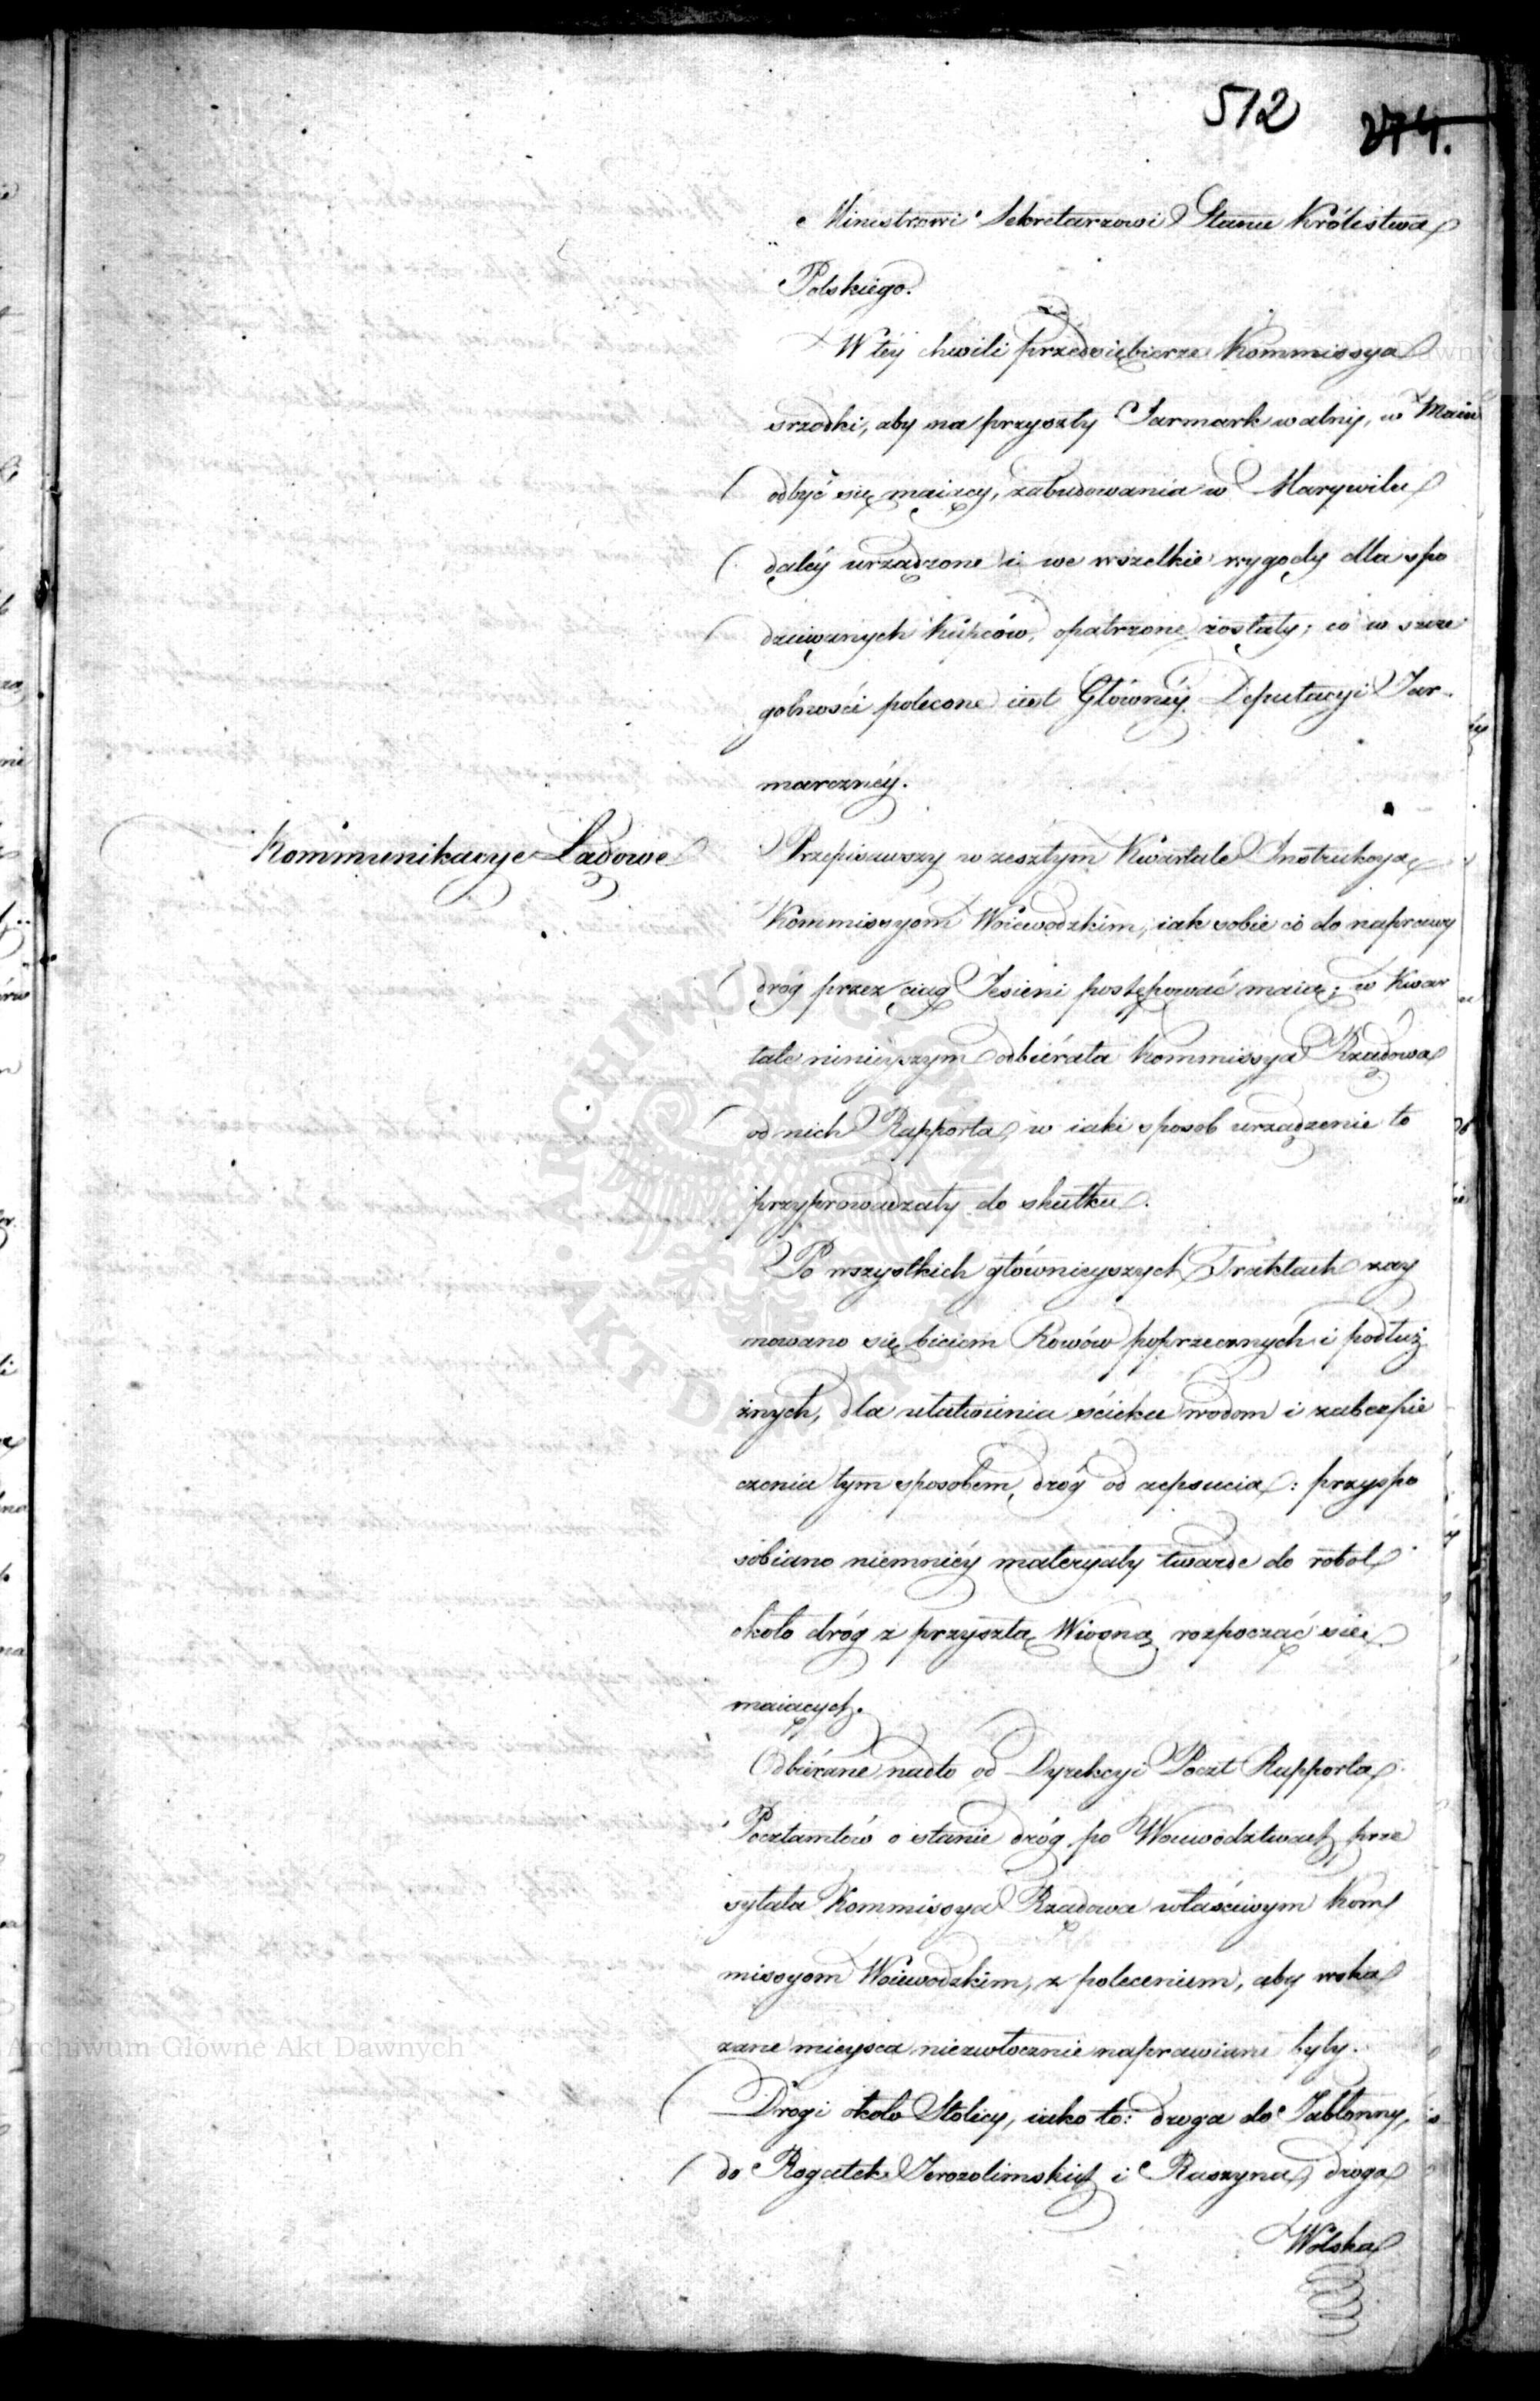 512 274.
Ministrowi Sekretarzowi Stanu Królestwa
Polskiego.
W téy chwili przedsiębierze Kommissya
srzodki, aby na przyszły Jarmark walny, w Maiu
odbyć się maiący, zabudowania w Marywilu
daléy urządzone i we wszelkie wygody dla spo
dziewanych kupców, opatrzone zostały; co w szcze
gólności polecone iest Głównéy Deputacyi Jar-
marcznéy.
Kommunikacye Lądowe
Przepisawszy w zeszłym Kwartale Instrukcyą
Kommissyom Woiewodzkim, iak sobie co do naprawy
dróg przez ciąg Jesieni postępować maią; w Kwar
tale ninieyszym odbiérała Kommissya Rządowa
od nich Rapporta, w iaki sposob urządzenie to
przyprowadzały do skutku.
Po wszystkich główniejszych Traktach zay
mowano się biciem Rowów poprzecznych i podłuż
żnych, dla ułatwienia ścieku wodom i zabezpie
czenia tym sposobem, dróg od zepsucia: przyspo
sobiano niemniéy materyały twarde do robot
około dróg z przyszłą Wiosną rozpocząć się
maiących.
Odbiérane nadto od Dyrekcyi Poczt Rapporta
Pocztamtów o stanie dróg po Woiewodztwach prze
syłała Kommissya Rządowa właściwym Kom
missyom Woiewodzkim, z poleceniem, aby wska
zane mieysca niezwłocznie naprawiane były.
Drogi około Stolicy, iako to: droga do Jabłonny,
do Rogatek Jerozolimskich i Raszyna, droga
Wolska
ARCHIWUM GŁÓWNE AKT DAWNYCH
Archiwum Główne Akt Dawnych